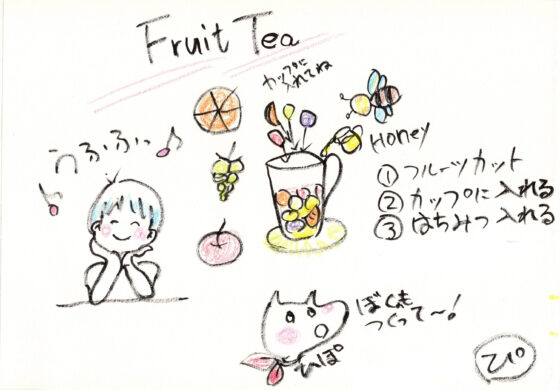 Fruit Tea
カップに
入れてね
うふふっ
Honey
①フルーツカット
②カップに入れる
③はちみつ入れる
ぼくも
つくって〜!
ひぽ
ぴ